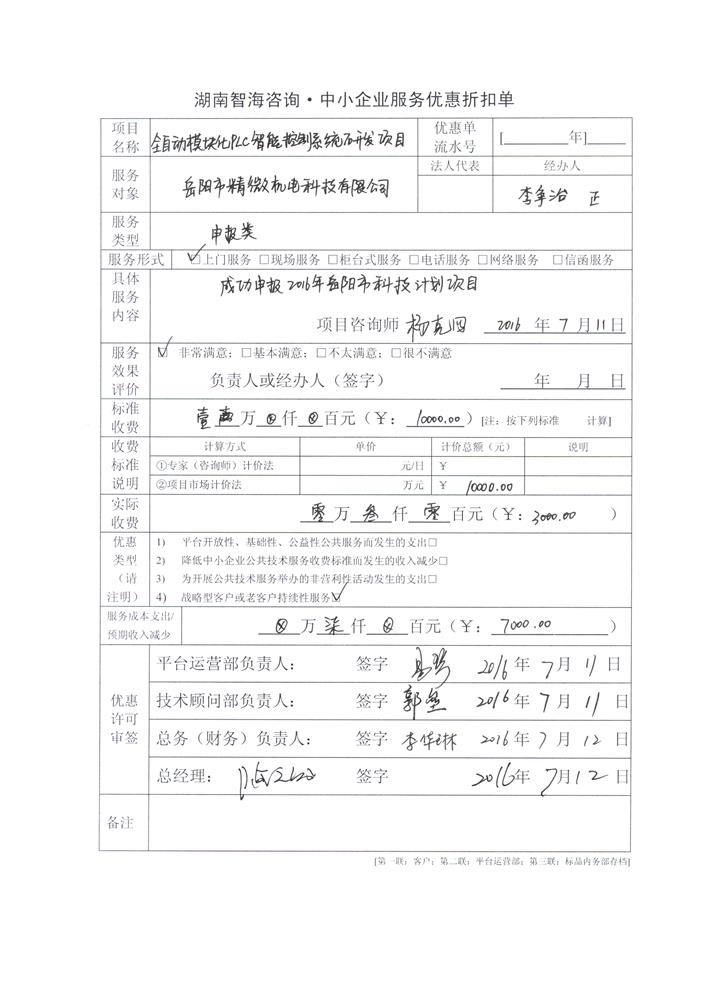 湖南智海咨询·中小企业服务优惠折扣单
项目名称 全自动模块化PLC智能控制系统研发项目 优惠单流水号 [ 年]
服务对象 岳阳市精微机电科技有限公司 法人代表 经办人
李争治
服务类型 申报类
服务形式 ☑上门服务 □现场服务 □柜台式服务 □电话服务 □网络服务 □信函服务
具体服务内容 成功申报2016年岳阳市科技计划项目
项目咨询师 杨克四 2016 年 7 月 11 日
服务效果评价 ☑ 非常满意；□基本满意；□不太满意；□很不满意
负责人或经办人（签字） 年 月 日
标准收费 壹 万 ⊗ 仟 ⊗ 百元（￥： 10000.00 ）[注：按下列标准 计算]
收费标准说明 计算方式 单价 计价总额（元） 说明
①专家（咨询师）计价法 元/日 ￥
②项目市场计价法 万元 ￥ 10000.00
实际收费 零 万 叁 仟 零 百元（￥：3000.00 ）
优惠类型（请注明） 1) 平台开放性、基础性、公益性公共服务而发生的支出□
2) 降低中小企业公共技术服务收费标准而发生的收入减少□
3) 为开展公共技术服务举办的非营利性活动发生的支出□
4) 战略型客户或老客户持续性服务☑
服务成本支出/预期收入减少 ⊗ 万 柒 仟 ⊗ 百元（￥： 7000.00 ）
优惠许可审签 平台运营部负责人： 签字 2016年 7月 11日
技术顾问部负责人： 签字 郭 2016年 7月 11日
总务（财务）负责人： 签字 李华琳 2016年 7月 12日
总经理： 签字 2016年 7月12日
备注
[第一联：客户；第二联：平台运营部；第三联：标品内务部存档]